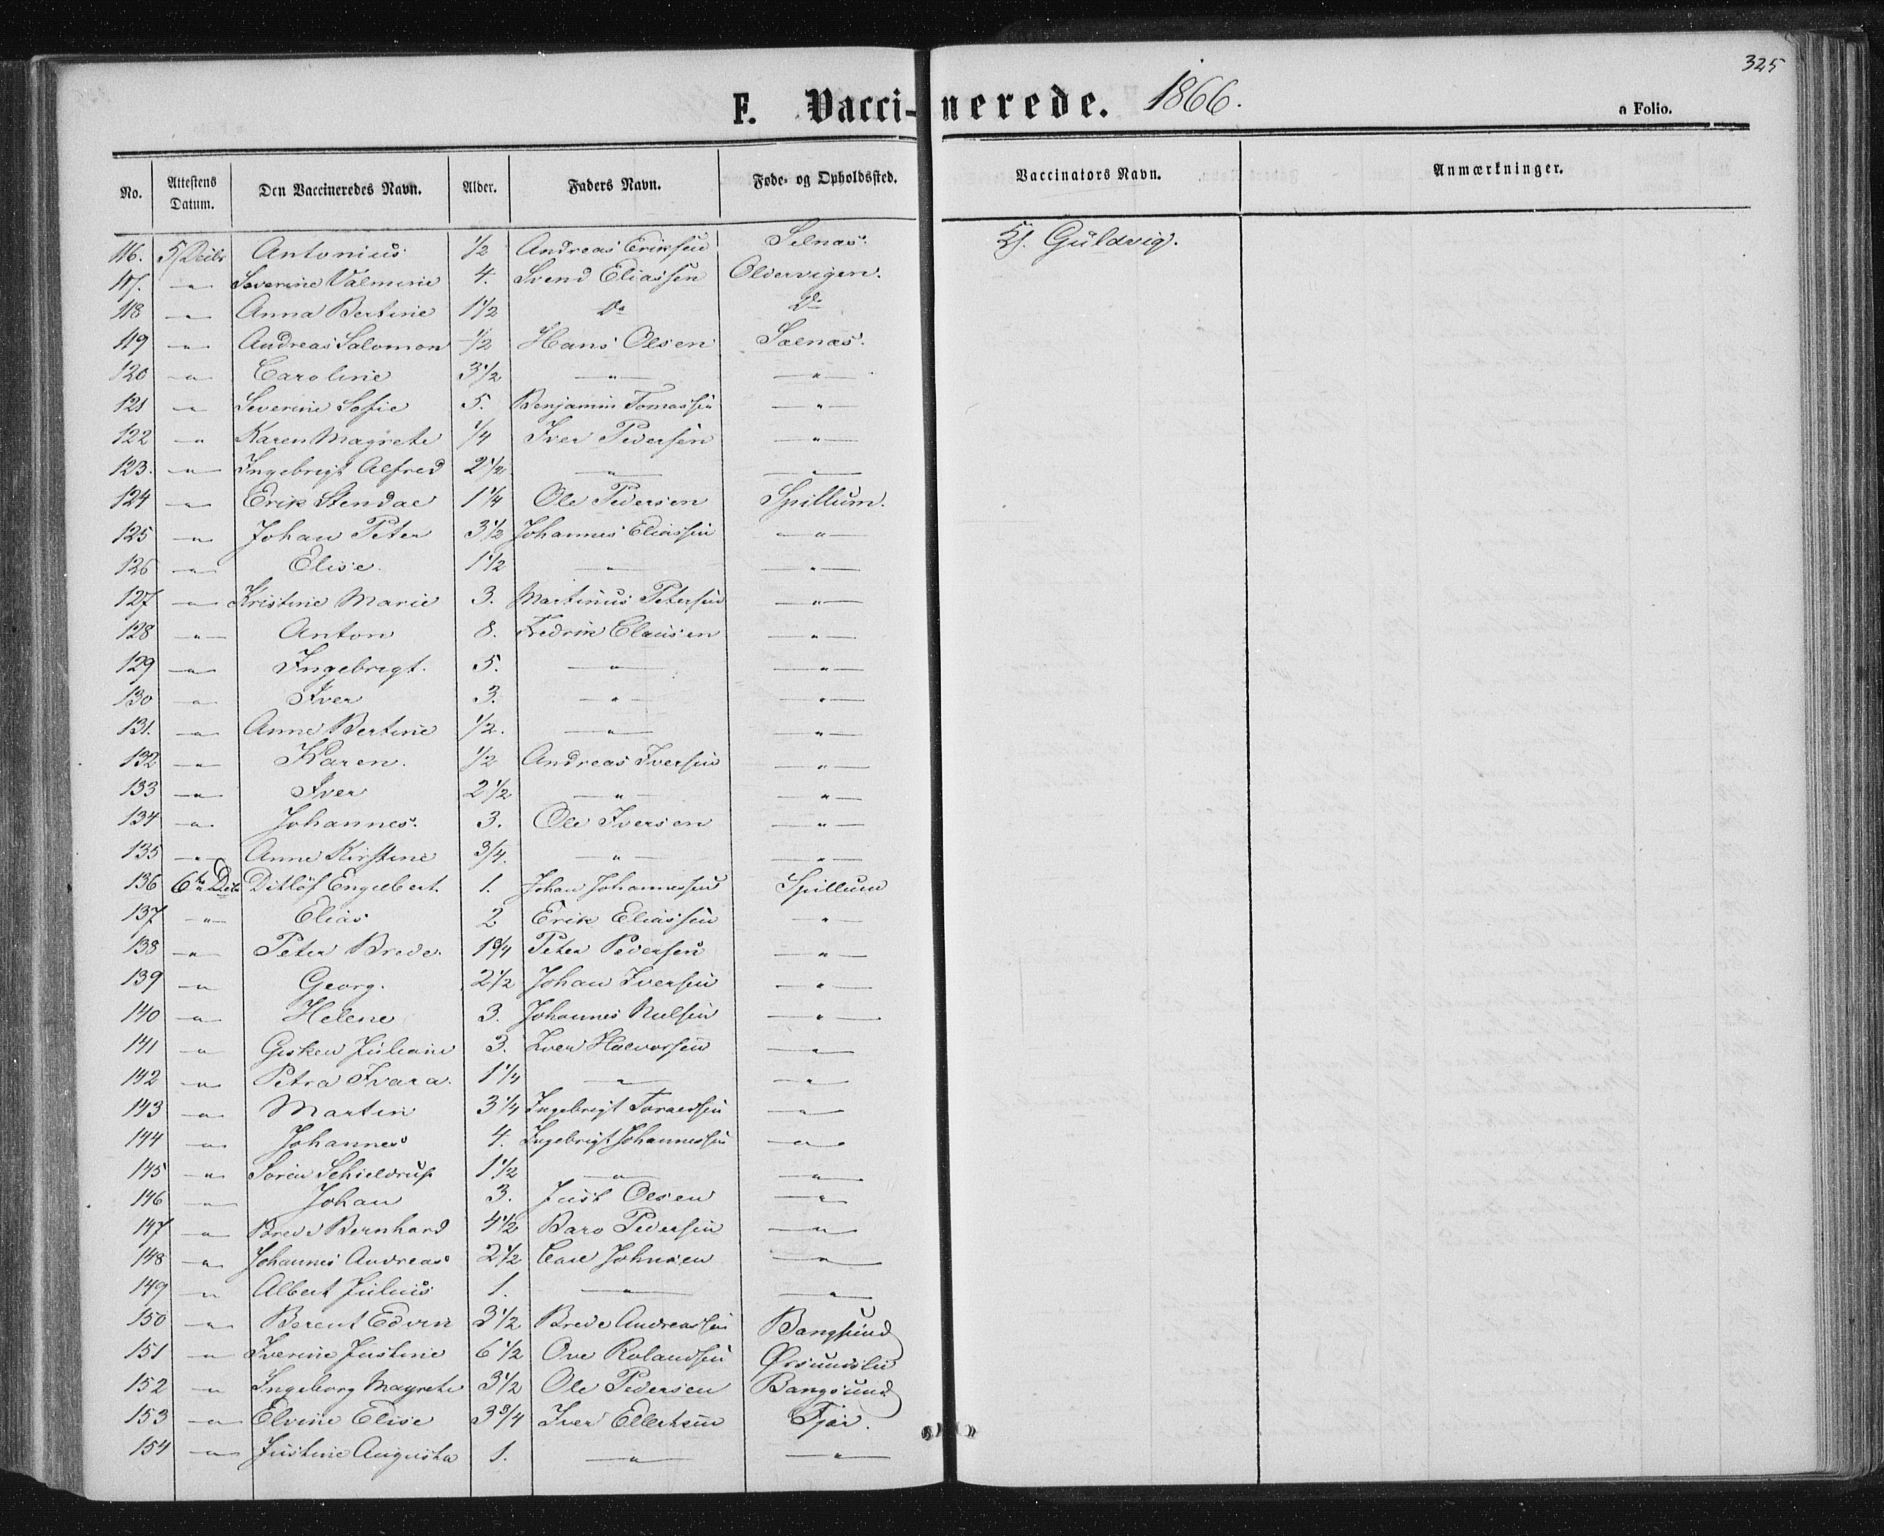 325
F. Vacci-nerede. 1866.
a Folio.
No. Attestens Datum. Den Vaccineredes Navn. Alder. Faders Navn. Føde- og Opholdssted. Vaccinators Navn. Anmærkninger.
116. 5/Dcbr Antonius 1/2 Andreas Eriksen Selnæs. Kl. Guldvig.
117. " Severine Valmine 4. Svend Eliassen Oldervigen.
118 " Anna Bertine 1 1/2 Do Do
119 " Andreas Salomon 1/2 Hans Olsen Sælnæs.
120 " Caroline 3 1/2 " "
121 " Severine Sofie 5. Benjamin Tomassen "
122 " Karen Magrete 1/4 Iver Pedersen "
123. " Ingebrigt Alfred 2 1/2 " "
124 " Erik Stendal 1 1/4 Ole Pedersen Spillum.
125 " Johan Peter 3 1/2 Johannes Eliassen "
126 " Elise. 1 1/2 " "
127 " Kristine Marie 3. Martinus Petersen "
128 " Anton 8. Fredrik Clausen "
129 " Ingebrigt. 5. " "
130 " Iver 3. " "
131. " Anne Bertine 1/2. " "
132 " Karen. 1/2 Andreas Iversen "
133 " Iver 2 1/2 " "
134 " Johannes. 3. Ole Iversen "
135 " Anne Kirstine 3/4. " "
136 6te Dcbr Ditlöf Engelbert. 1. Johan Johannessen Spillum
137 " Elias 2. Erik Eliassen "
138 " Peter Brede. 1 3/4 Peter Pedersen "
139 " Georg. 2 1/2 Johan Iversen "
140 " Helene 3. Johannes Nielsen "
141 " Gisken Juliane 3. Iver Halvorsen "
142 " Petra Ivara. 1 1/4 " "
143 " Martin 3 1/4 Ingebrigt Toraldsen "
144 " Johannes 4. Ingebrigt Johannessen "
145 " Sören Schieldrup 1 1/2 " "
146 " Johan 3. Just Olsen "
147 " Brede Bernhard 4 1/2 Baro Pedersen "
148 " Johannes Andreas 2 1/2 Carl Johnsen "
149 " Albert Julius 1. " "
150 " Berent Edvin 3 1/2 Brede Andreassen Bangsund
151 " Iverine Justine 6 1/2 Ove Rolandsen Ørsundslie
152 " Ingeborg Magrete 3 1/2 Ole Pedersen Bangsund
153 " Elvine Elise 3 3/4 Iver Ellertsen Fjær.
154 " Justine Augusta 1. " "